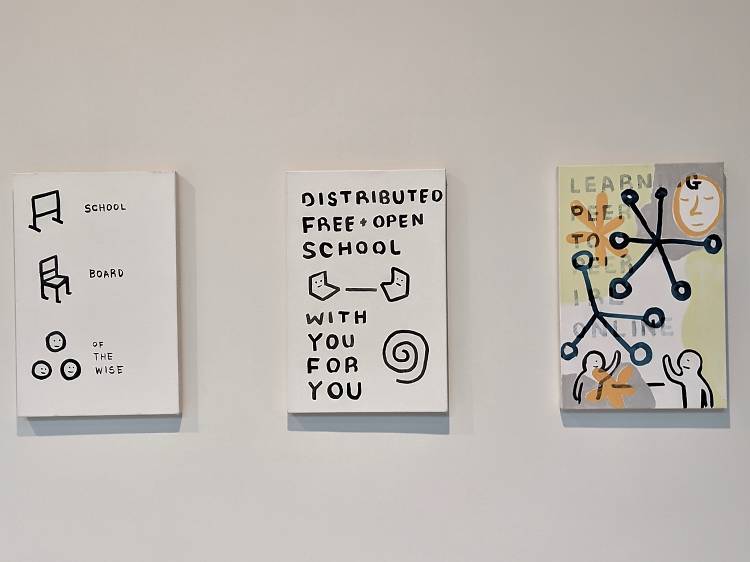 SCHOOL
BOARD
OF
THE
WISE
DISTRIBUTED
FREE + OPEN
SCHOOL
WITH
YOU
FOR
YOU
LEARNING
PEER
TO
PEER
IRL
ONLINE